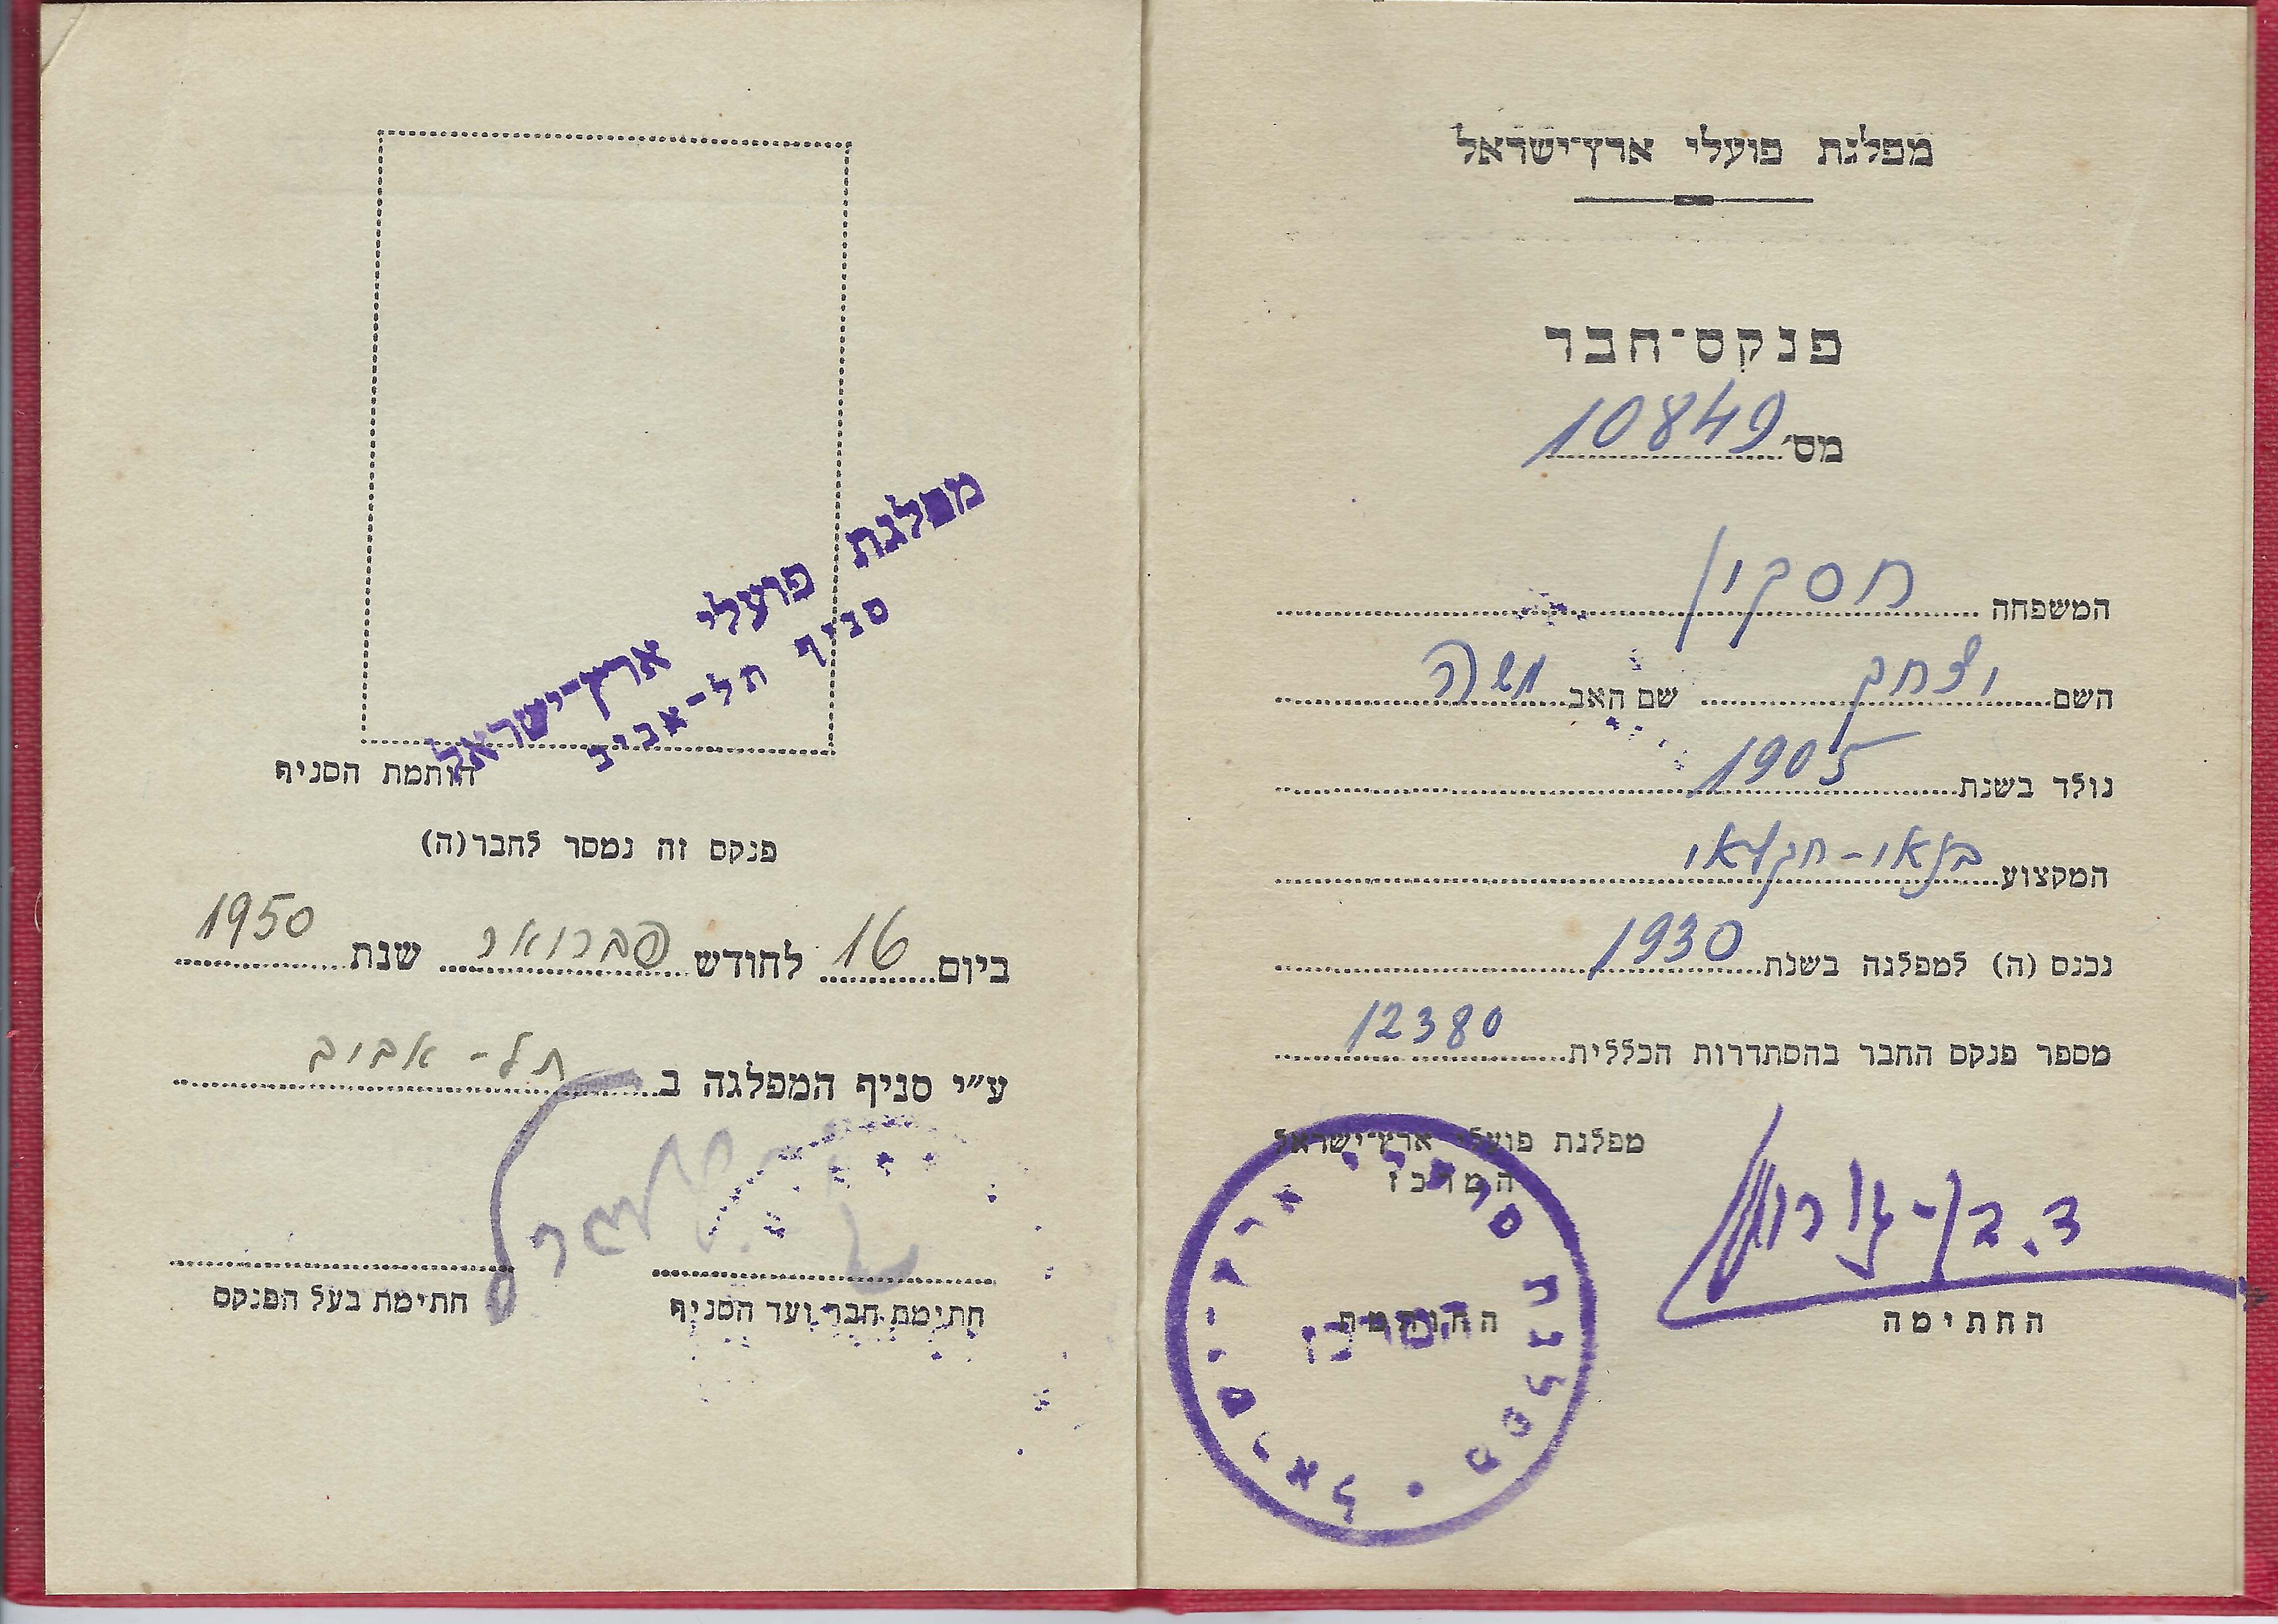 מפלגת פועלי ארץ־ישראל
פנקס־חבר
מס׳ 10849
המשפחה חסקין
השם יצחק שם האב משה
נולד בשנת 1905
המקצוע בנאי-חקלאי
נכנס (ה) למפלגה בשנת 1930
מספר פנקס החבר בהסתדרות הכללית 12380
מפלגת פועלי ארץ־ישראל
המרכז
ד. בן-גוריון
החותמת
החתימה
מפלגת פועלי ארץ-ישראל
המרכז
מפלגת פועלי ארץ-ישראל
סניף תל-אביב
חותמת הסניף
פנקס זה נמסר לחבר(ה)
ביום 16 לחודש פברואר שנת 1950
ע״י סניף המפלגה ב תל-אביב
חתימת חבר ועד הסניף
חתימת בעל הפנקס